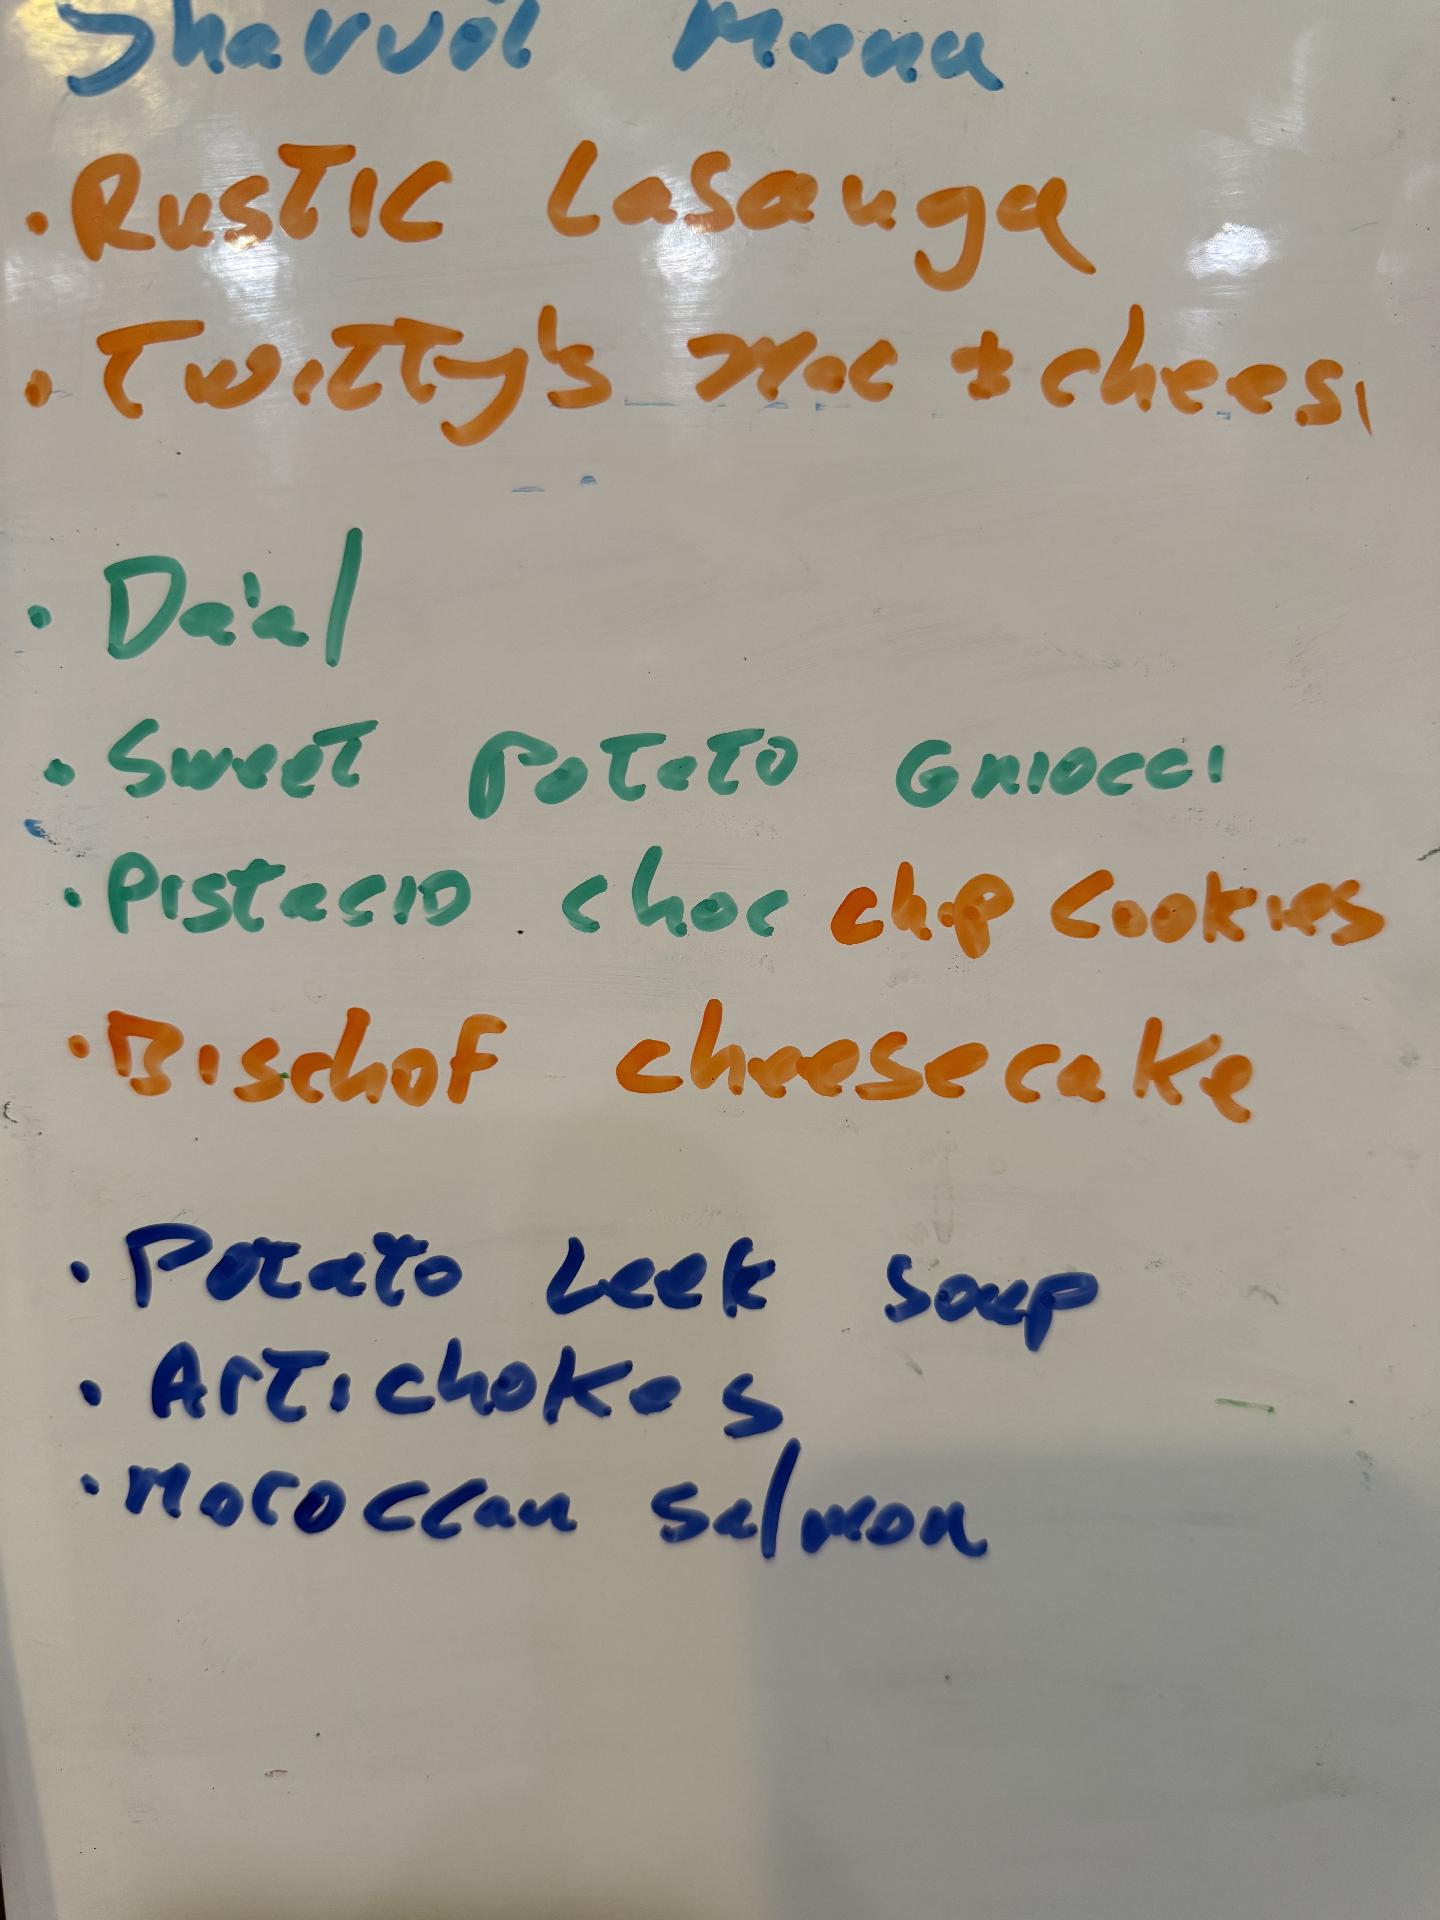 Shavuot Menu
• Rustic Lasauga
• Twitty's Mac & cheesi
• Da'al
• Sweet Potato Gniocci
• Pistacio choc chip cookies
• Bischof cheesecake
• Potato Leek Soup
• Artichokes
• Moroccan Salmon